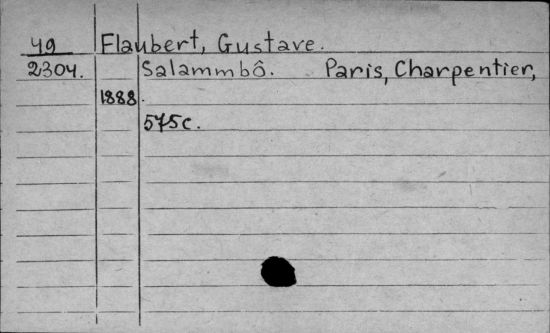 49 Flaubert, Gustave.
2304. Salammbô. Paris, Charpentier,
1888.
575c.